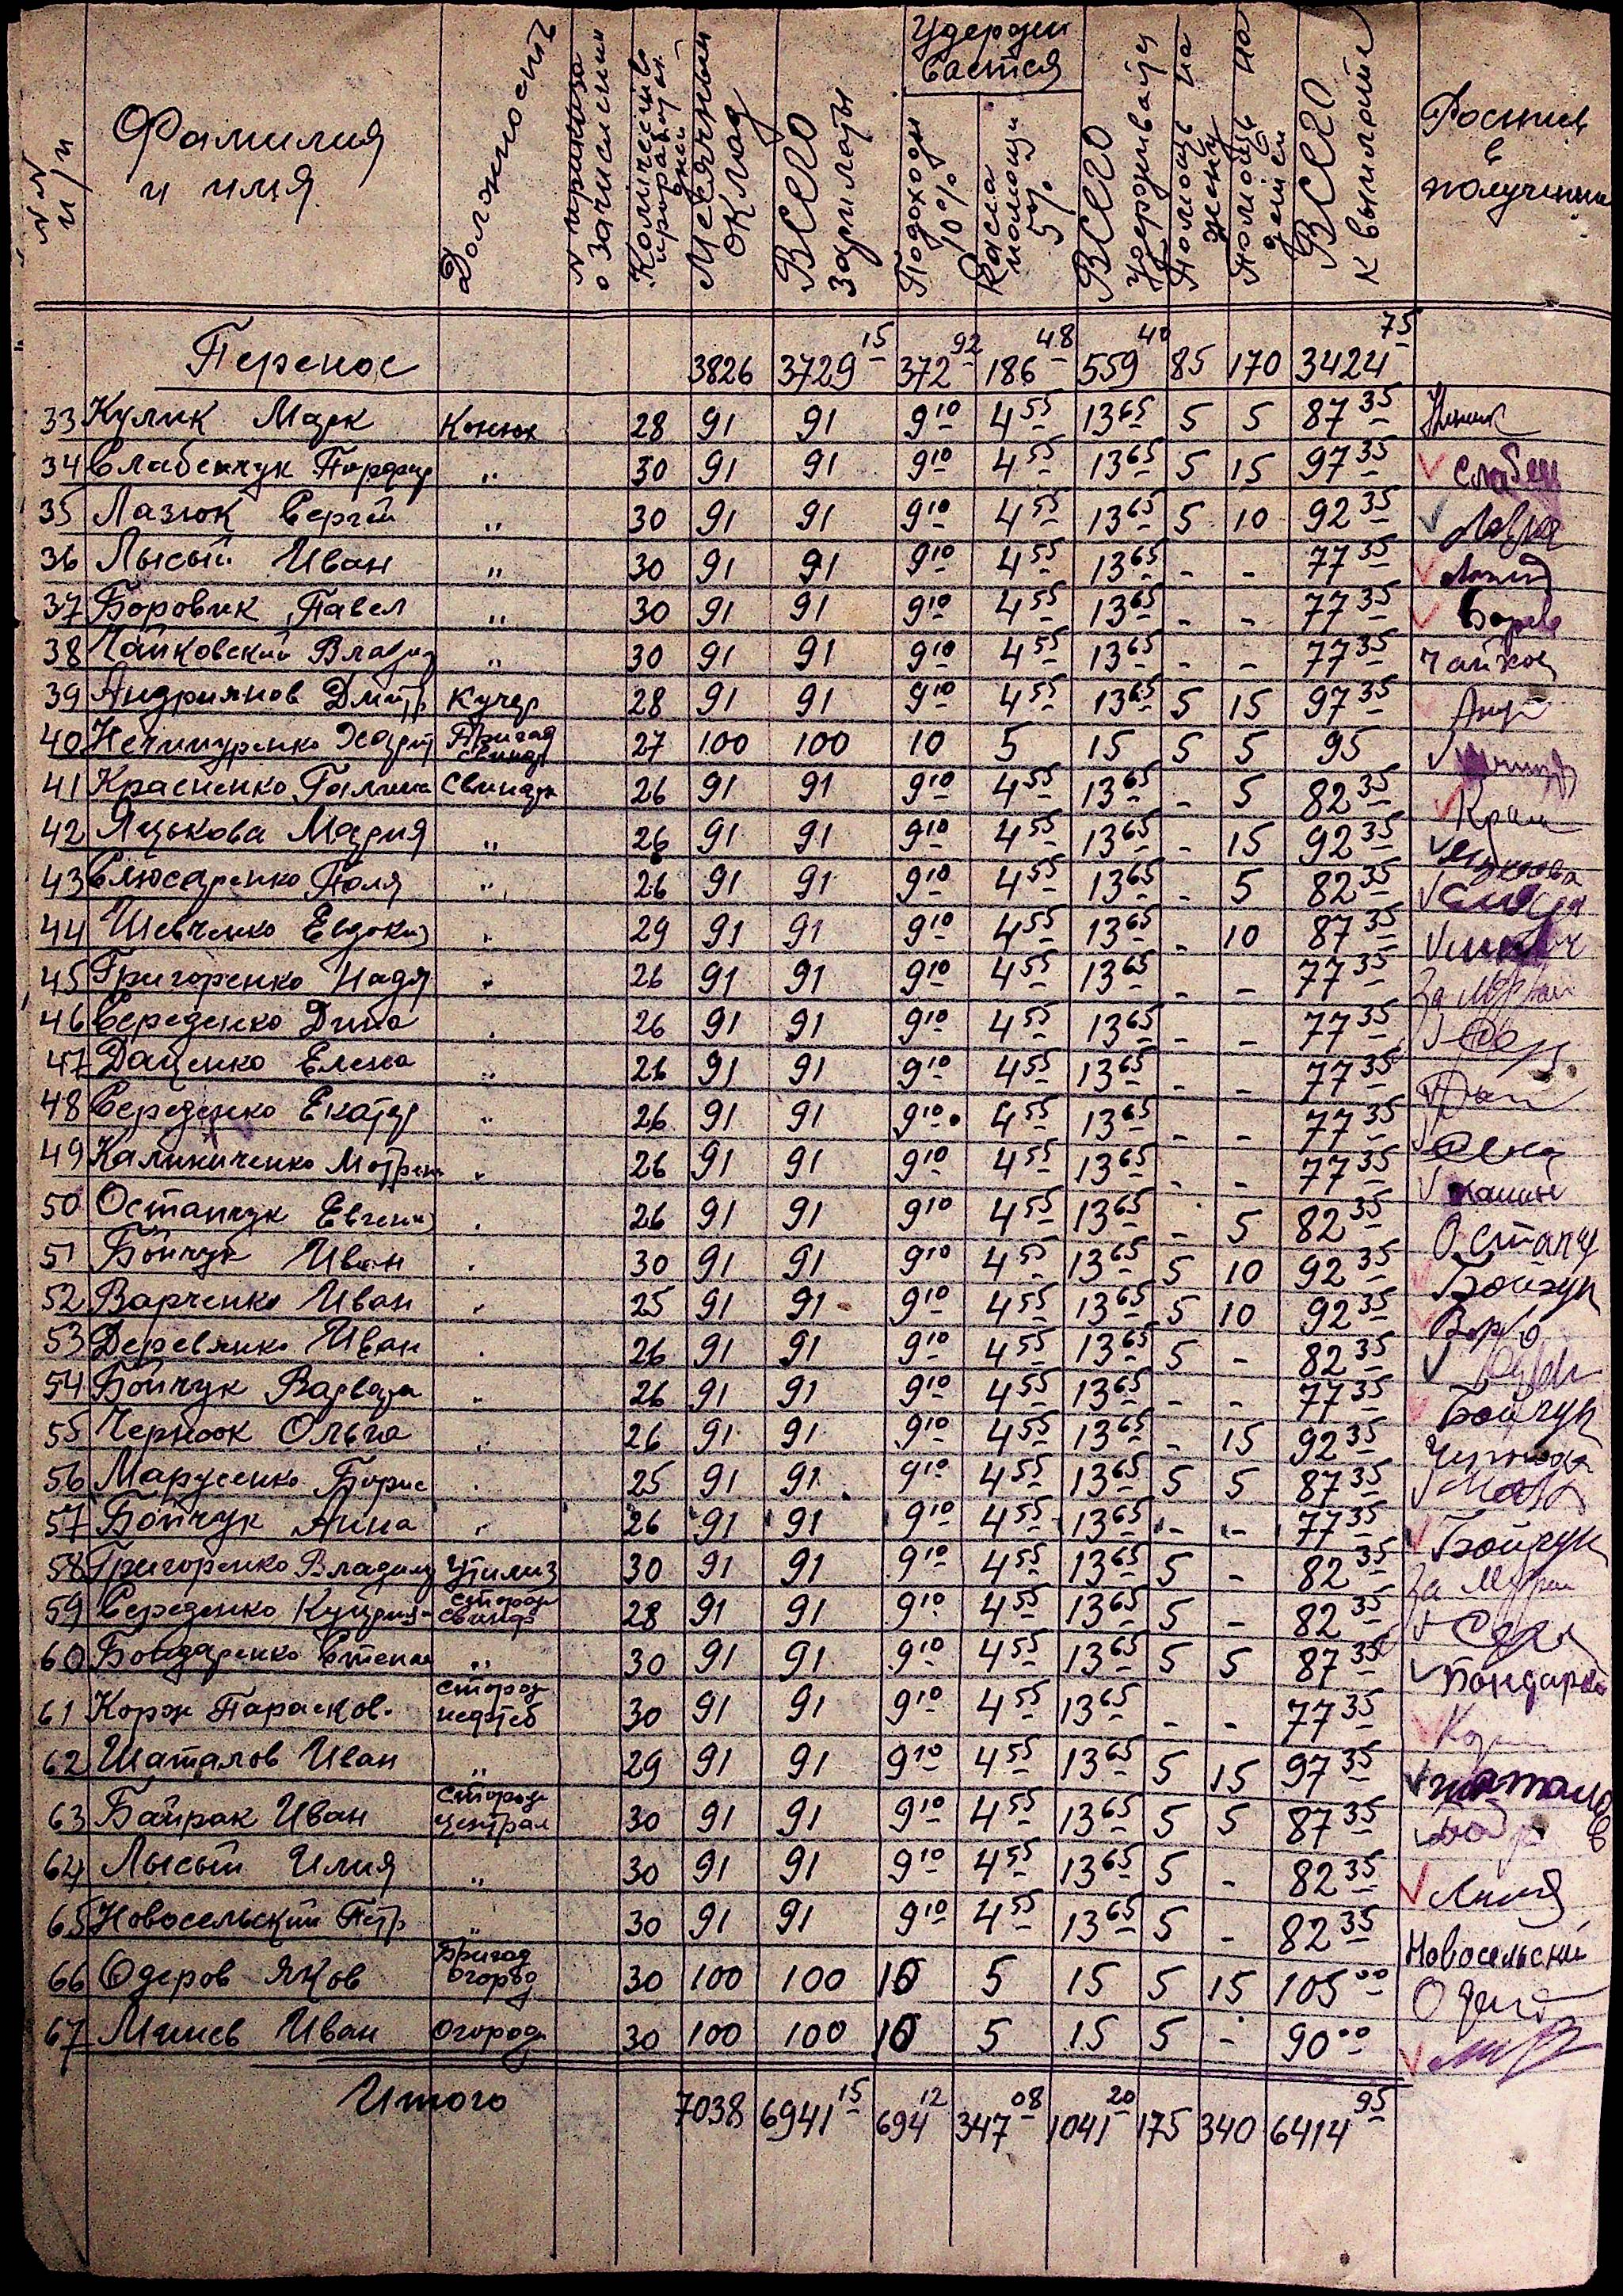 №№ п/п Фамилия и имя Должность № приказа о зачислении Количество проработан дней Месячный оклад ВСЕГО зарплаты Удерживается Подоходн 10% Касса помощи 5% ВСЕГО удерживается Помощь на жену Помощь на детей ВСЕГО к выплате Роспись в получении
Перенос 3826 3729 15 372 92 186 48 559 40 85 170 3424 75
33 Кулик Марк Конюх 28 91 91 9 10 4 55 13 65 5 5 87 35
34 Слабенчук Порфир „ 30 91 91 9 10 4 55 13 65 5 15 97 35 Слабен
35 Лазюк Сергей „ 30 91 91 9 10 4 55 13 65 5 10 92 35
36 Лысый Иван „ 30 91 91 9 10 4 55 13 65 - - 77 35
37 Боровик Павел „ 30 91 91 9 10 4 55 13 65 - - 77 35
38 Чайковский Владим „ 30 91 91 9 10 4 55 13 65 - - 77 35 Чайков
39 Андриянов Дмитр Кучер 28 91 91 9 10 4 55 13 65 5 15 97 35
40 Нечипуренко Бригад свинар 27 100 100 10 5 15 5 5 95
41 Красненко Галина Свинар 26 91 91 9 10 4 55 13 65 - 5 82 35
42 Яцькова Мария „ 26 91 91 9 10 4 55 13 65 - 15 92 35
43 Слюсаренко Поля „ 26 91 91 9 10 4 55 13 65 - 5 82 35
44 Шевченко Евдоки „ 29 91 91 9 10 4 55 13 65 - 10 87 35
45 Григоренко Надя „ 26 91 91 9 10 4 55 13 65 - - 77 35
46 Середенко Дина „ 26 91 91 9 10 4 55 13 65 - - 77 35
47 Даценко Елена „ 26 91 91 9 10 4 55 13 65 - - 77 35
48 Середенко Екатер „ 26 91 91 9 10 4 55 13 65 - - 77 35
49 Калиниченко Мотрен „ 26 91 91 9 10 4 55 13 65 - - 77 35
50 Остапчук Евгени „ 26 91 91 9 10 4 55 13 65 - 5 82 35 Остапч
51 Бойчук Иван „ 30 91 91 9 10 4 55 13 65 5 10 92 35 Бойчук
52 Варченко Иван „ 25 91 91 9 10 4 55 13 65 5 10 92 35
53 Деревянко Иван „ 26 91 91 9 10 4 55 13 65 5 - 82 35
54 Бойчук Варвара „ 26 91 91 9 10 4 55 13 65 - - 77 35 Бойчук
55 Чернюк Ольга „ 26 91 91 9 10 4 55 13 65 - 15 92 35
56 Марусенко Борис „ 25 91 91 9 10 4 55 13 65 5 5 87 35
57 Бойчук Анна „ 26 91 91 9 10 4 55 13 65 - - 77 35 Бойчук
58 Григоренко Владим Утилиз 30 91 91 9 10 4 55 13 65 5 - 82 35
59 Середенко Куприян Сторож свинар 28 91 91 9 10 4 55 13 65 5 - 82 35
60 Бондаренко Степан „ 30 91 91 9 10 4 55 13 65 5 5 87 35 Бондарен
61 Корж Парасков. Сторож 30 91 91 9 10 4 55 13 65 - - 77 35
62 Шаталов Иван „ 29 91 91 9 10 4 55 13 65 5 15 97 35 Шаталов
63 Байрак Иван Сторож Централ 30 91 91 9 10 4 55 13 65 5 5 87 35
64 Лысый Илия „ 30 91 91 9 10 4 55 13 65 5 - 82 35
65 Новосельский Петр „ 30 91 91 9 10 4 55 13 65 5 - 82 35 Новосельский
66 Одеров Яков Бригад огород 30 100 100 10 5 15 5 15 105 00
67 Мишев Иван Огородн 30 100 100 10 5 15 5 - 90 00
Итого 7038 6941 15 694 12 347 08 1041 20 175 340 6414 95